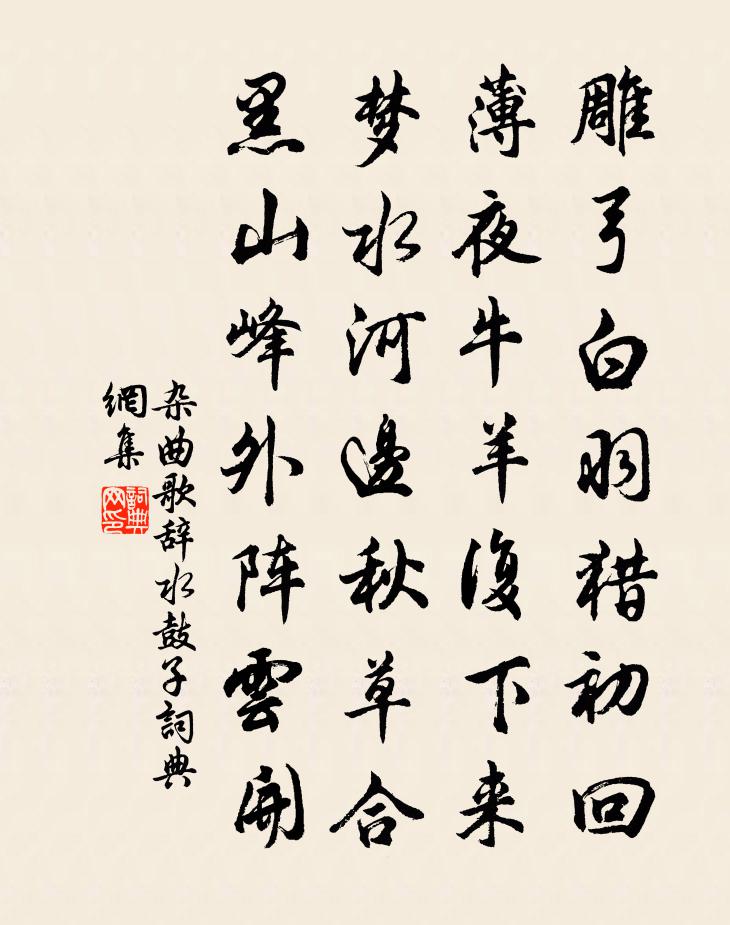 雕弓白羽猎初回
薄夜牛羊復下来
梦水河邊秋草合
黑山峰外阵雲開
杂曲歌辞水鼓子詞典
網集
詞典
网印